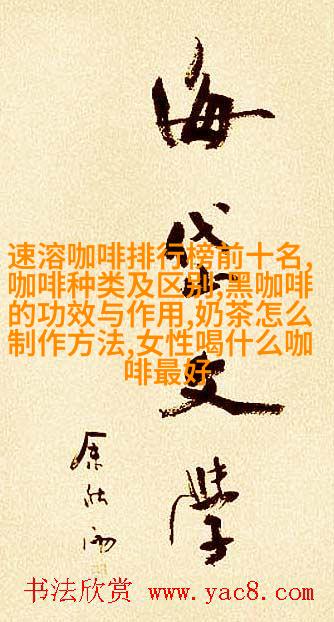 海岱文学
速溶咖啡排行榜前十名,
咖啡种类及区别,黑咖啡
的功效与作用,奶茶怎么
制作方法,女性喝什么咖
啡最好
书法欣赏 www.yac8.com